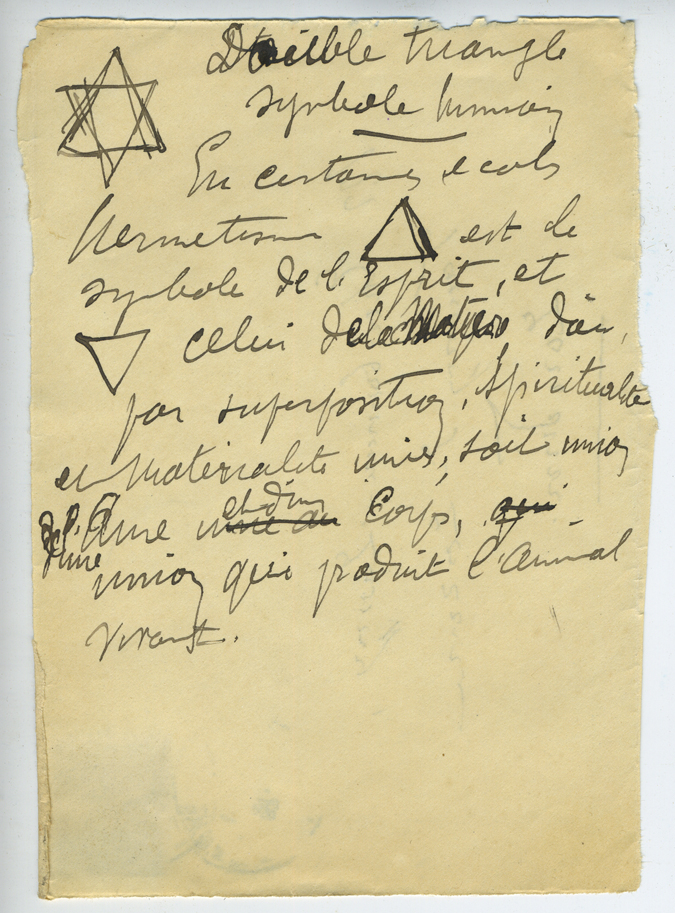 Double triangle
symbole humain
En certaines ecoles
Hermetisme △ est le
symbole de l'Esprit, et
▽ celui de la Matiere d'ou,
par superposition, Spiritualite
et Materialite unies, soit union
de l'Ame et d'un Corps,
union qui produit l'animal
vivant.